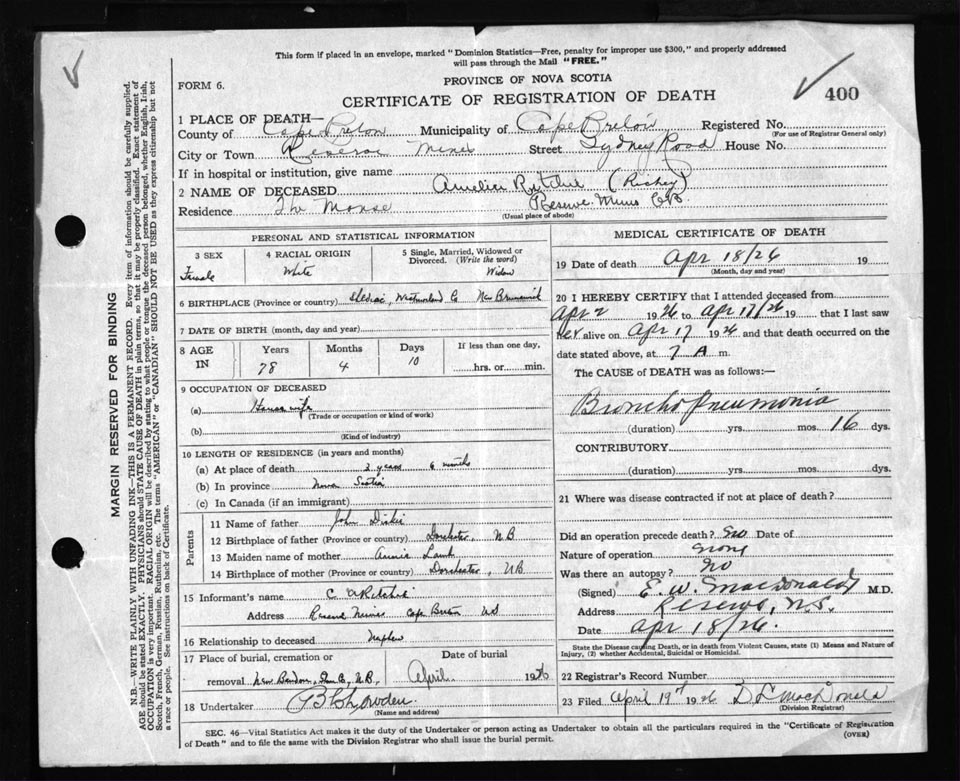 This form if placed in an envelope, marked "Dominion Statistics—Free, penalty for improper use $300," and properly addressed
will pass through the Mail "FREE."
FORM 6.
PROVINCE OF NOVA SCOTIA
CERTIFICATE OF REGISTRATION OF DEATH
400
1 PLACE OF DEATH—
County of Cape Breton Municipality of Cape Breton Registered No.
(For use of Registrar General only)
City or Town Reserve Mines Street Sydney Road House No.
If in hospital or institution, give name
2 NAME OF DECEASED Amelia Ritchie (Richey)
Residence The Manse Reserve Mines CB
(Usual place of abode)
PERSONAL AND STATISTICAL INFORMATION
3 SEX
Female
4 RACIAL ORIGIN
White
5 Single, Married, Widowed or
Divorced. (Write the word)
Widow
6 BIRTHPLACE (Province or country) Shediac, Westmorland Co New Brunswick
7 DATE OF BIRTH (month, day and year)
8 AGE
IN
Years
78
Months
4
Days
10
If less than one day,
hrs. or min.
9 OCCUPATION OF DECEASED
(a) Housewife
(Trade or occupation or kind of work)
(b)
(Kind of industry)
10 LENGTH OF RESIDENCE (in years and months)
(a) At place of death years 6 months
(b) In province Nova Scotia
(c) In Canada (if an immigrant)
Parents
11 Name of father John Dickie
12 Birthplace of father (Province or country) Dorchester, N B
13 Maiden name of mother Annie Lamb
14 Birthplace of mother (Province or country) Dorchester, N B
15 Informant's name C
Address Reserve Mines Cape Breton N S
16 Relationship to deceased Nephew
17 Place of burial, cremation or Date of burial
removal N.B. April 1926
18 Undertaker
(Name and address)
MEDICAL CERTIFICATE OF DEATH
19 Date of death Apr 18/26 19
(Month, day and year)
20 I HEREBY CERTIFY that I attended deceased from
Apr 2 1926 to Apr 17/26 19 that I last saw
her alive on Apr 17 1926 and that death occurred on
date stated above, at 7 A m.
The CAUSE of DEATH was as follows:—
Broncho Pneumonia
(duration) yrs. mos. 16 dys.
CONTRIBUTORY
(duration) yrs. mos. dys.
21 Where was disease contracted if not at place of death?
Did an operation precede death? No Date of
Nature of operation None
Was there an autopsy? No
(Signed) E. W. MacDonald M.D.
Address Reserve, N.S.
Date Apr 18/26.
State the Disease causing Death, or in death from Violent Causes, state (1) Means and Nature of
Injury, (2) whether Accidental, Suicidal or Homicidal.
22 Registrar's Record Number
23 Filed April 19th 1926 D L MacDonald
(Division Registrar)
SEC. 46—Vital Statistics Act makes it the duty of the Undertaker or person acting as Undertaker to obtain all the particulars required in the "Certificate of Registration
of Death" and to file the same with the Division Registrar who shall issue the burial permit.
(OVER)
MARGIN RESERVED FOR BINDING
N.B.—WRITE PLAINLY WITH UNFADING INK—THIS IS A PERMANENT RECORD. Every item of information should be carefully supplied.
AGE should be stated EXACTLY. PHYSICIANS should STATE CAUSE OF DEATH in plain terms, so that it may be properly classified. Exact statement of
OCCUPATION is very important. RACIAL ORIGIN will be described by stating to what people or tongue the deceased person belonged, whether English, Irish,
Scotch, French, German, Russian, Ruthenian, etc. The terms "AMERICAN" or "CANADIAN" SHOULD NOT BE USED as they express citizenship but not
a race or people. See instructions on back of Certificate.